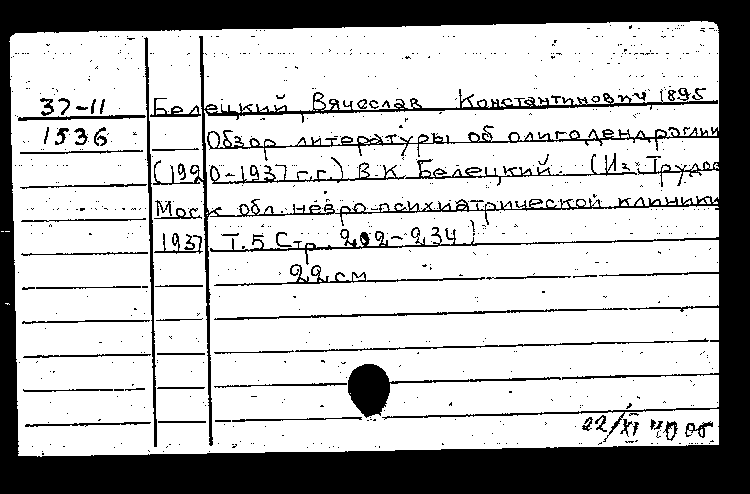 37-11 Белецкий, Вячеслав Константинович, 1895
1536 Обзор литературы об олигодендроглии
(1920-1937 г.г.) В.К. Белецкий. (Из: Трудов
Моск. обл. невро-психиатрической клиники
1937. Т.5 Стр. 202-234)
22 см
22/XI 40